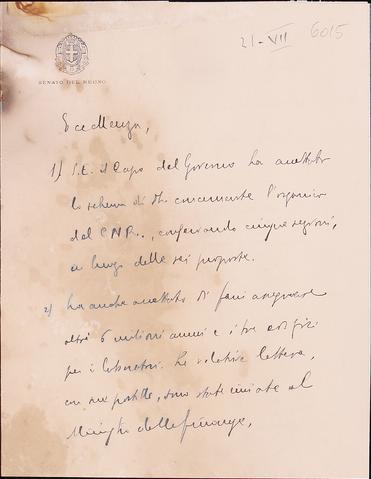 21-VII 6015
SENATO DEL REGNO
Eccellenza,
1) S.E. il Capo del Governo ha accettato
lo schema di concernente l'organico
del C.N.R., conservando cinque
a luogo delle sei proposte.
2) ha anche accettato di farci assegnare
altri 6 milioni annui e i tre edifizi
per i laboratori. Le relative lettere,
con sue postille, sono state inviate al
Ministro delle finanze,